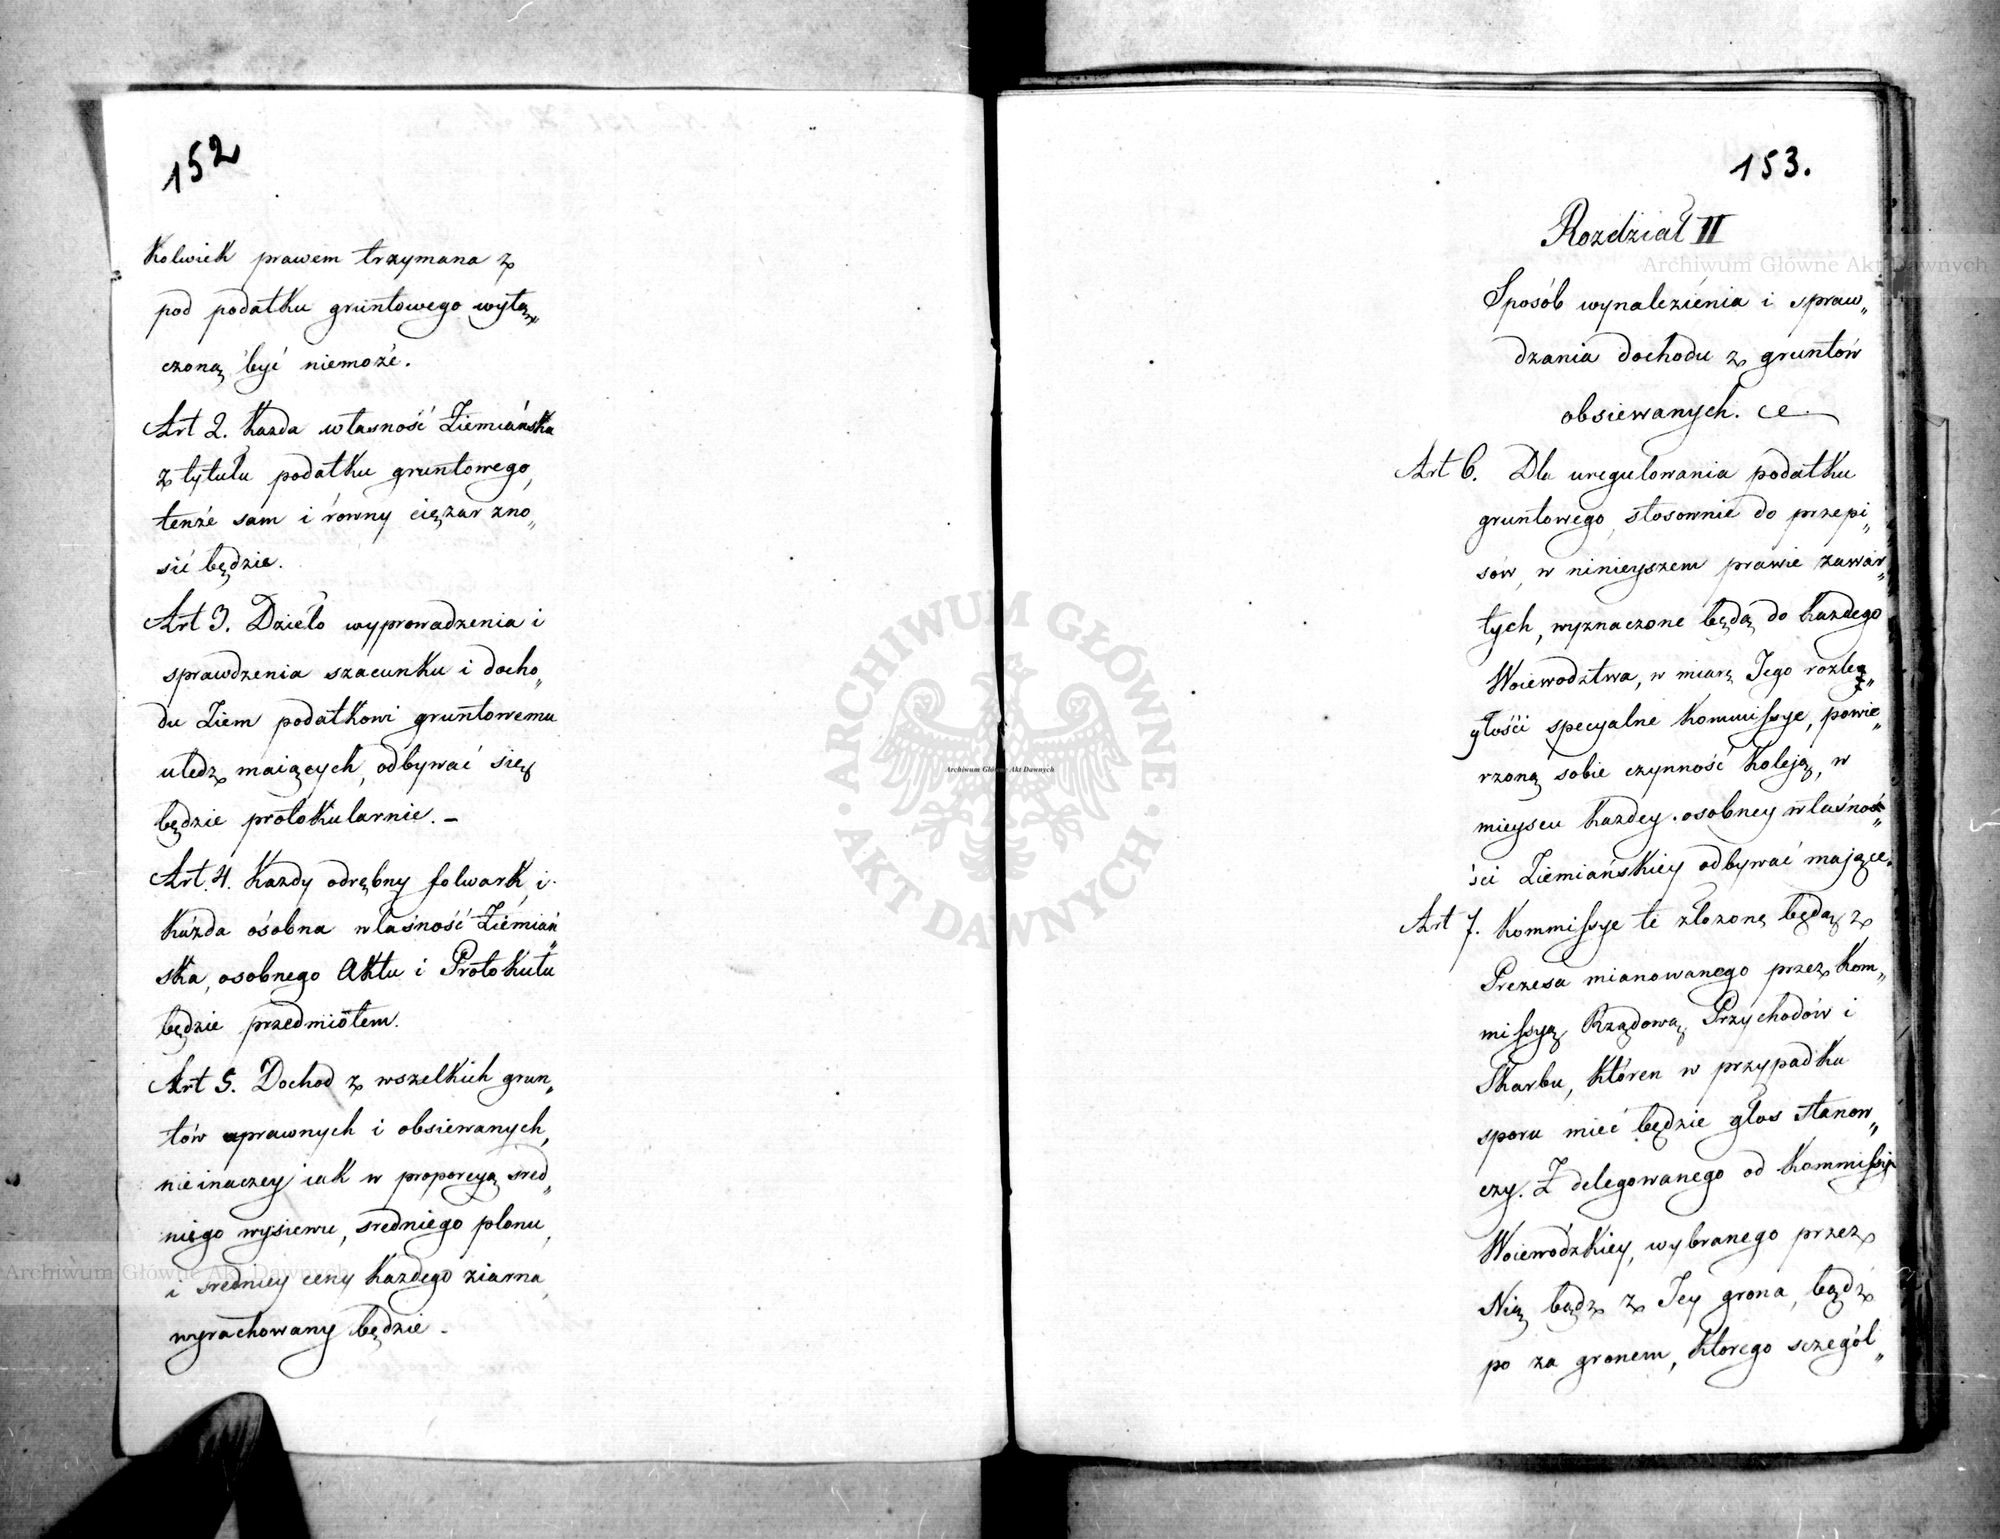 152
Kolwiek prawem trzymana z
pod podatku gruntowego wyłą„
czoną być niemoże.
Art 2. Każda własność Ziemiańska
z tytułu podatku gruntowego,
tenże sam i równy ciężar zno„
sić będzie.
Art 3. Dzieło wyprowadzenia i
sprawdzenia szacunku i docho„
du Ziem podatkowi gruntowemu
uledz maiących, odbywać się
będzie protokularnie. –
Art. 4. Każdy odrębny folwark, i
Każda osobna własność Ziemiań„
ska, osobnego Aktu i Protokułu
będzie przedmiotem.
Art 5. Dochod z wszelkich grun„
tów uprawnych i obsiewanych,
nieinaczey iak w proporcyą śred„
niego wysiewu, średniego plonu,
i średniey ceny Każdego ziarna,
wyrachowany będzie.
153.
Rozdział II
Sposób wynalezienia i spraw„
dzania dochodu z gruntów
obsiewanych.
Art 6. Dla uregulowania podatku
gruntowego, stosownie do przepi„
sów, w ninieyszem prawie zawar„
tych, wyznaczone będą do Każdego
Woiewodztwa, w miarę Jego rozle„
głości specyalne Kommissye, powie„
rzoną sobie czynność Koleją, w
mieyscu Każdey osobney własno„
ści Ziemiańskiey odbywać mające.
Art 7. Kommissye te złożone będą z
Prezesa mianowanego przez Kom„
missyą Rządową Przychodów i
Skarbu, Któren w przypadku
sporu mieć będzie głos stanow„
czy. Z delegowanego od Kommissyi
Woiewódzkiey, wybranego przez
Nią bądz z Jey grona, bądź
po za gronem, Którego szczegól„
Archiwum Główne Akt Dawnych
Archiwum Główne Akt Dawnych
Archiwum Główne Akt Dawnych
ARCHIWUM GŁÓWNE AKT DAWNYCH